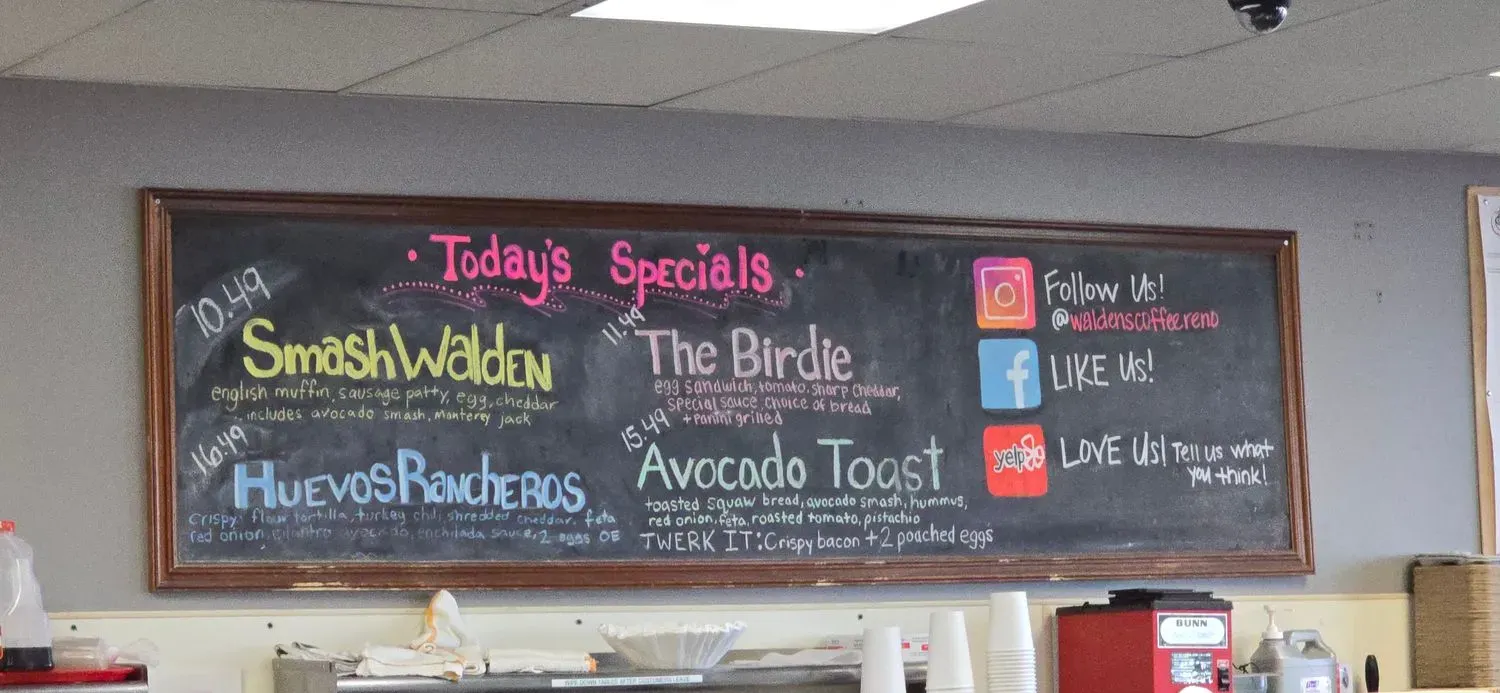 · Today's Specials ·
10.49
SmashWalden
english muffin, sausage patty, egg, cheddar
includes avocado smash, monterey jack
16.49
HuevosRancheros
Crispy flour tortilla, turkey chili, shredded cheddar, feta
red onion, cilantro avocado, enchilada sauce, 2 eggs OE
11.49
The Birdie
egg sandwich, tomato, sharp cheddar,
special sauce, choice of bread
+ panini grilled
15.49
Avocado Toast
toasted squaw bread, avocado smash, hummus,
red onion, feta, roasted tomato, pistachio
TWERK IT: Crispy bacon + 2 poached eggs
Follow Us!
@waldenscoffeereno
LIKE Us!
yelp
LOVE Us! Tell us what
you think!
WIPE DOWN TABLES AFTER CUSTOMERS LEAVE
BUNN